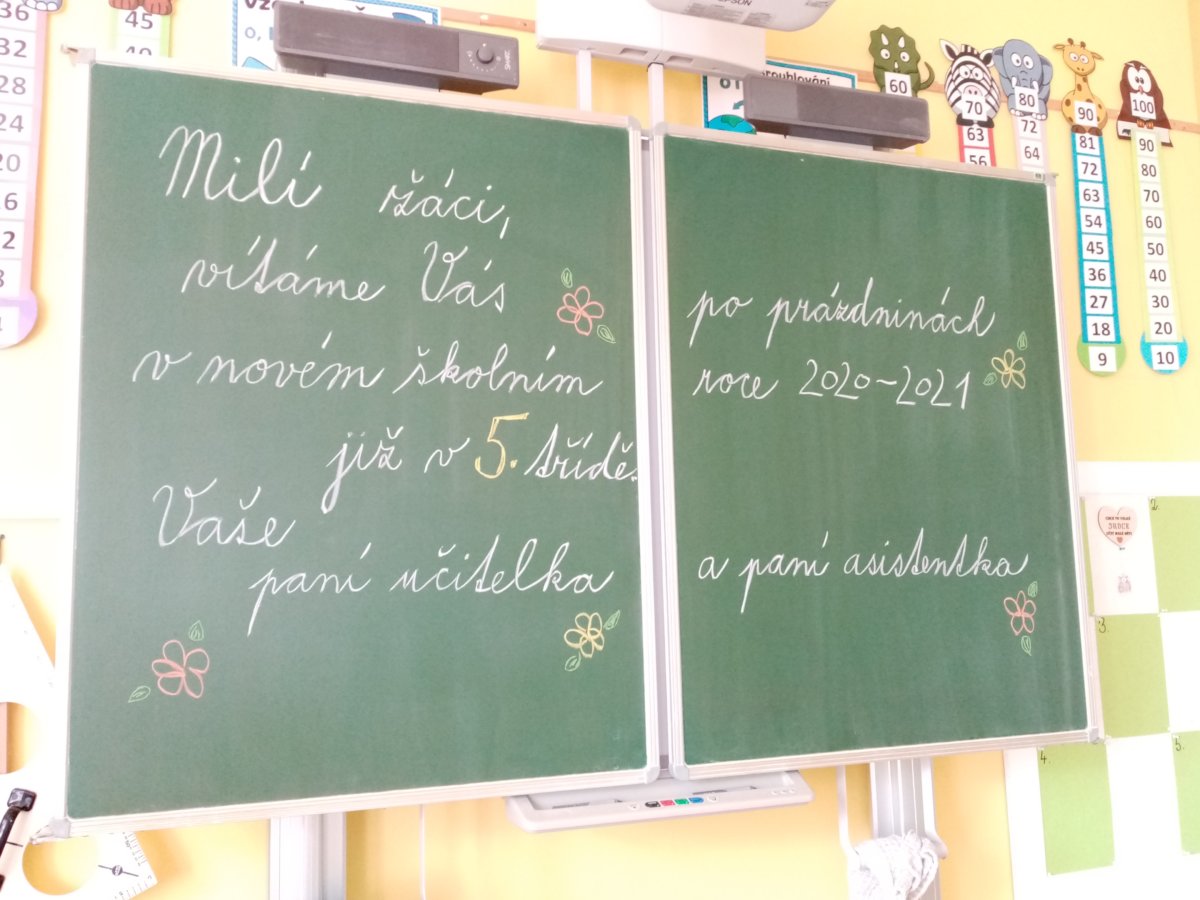 Milí žáci,
vítáme Vás po prázdninách
v novém školním roce 2020-2021
již v 5. třídě.
Vaše
paní učitelka a paní asistentka
EPSON
SMART
36
32
28
24
20
45
40
60
70
63
56
80
72
64
90
81
72
63
54
45
36
27
18
9
100
90
80
70
60
50
40
30
20
10
SRDCE
2.
3.
4.
5.